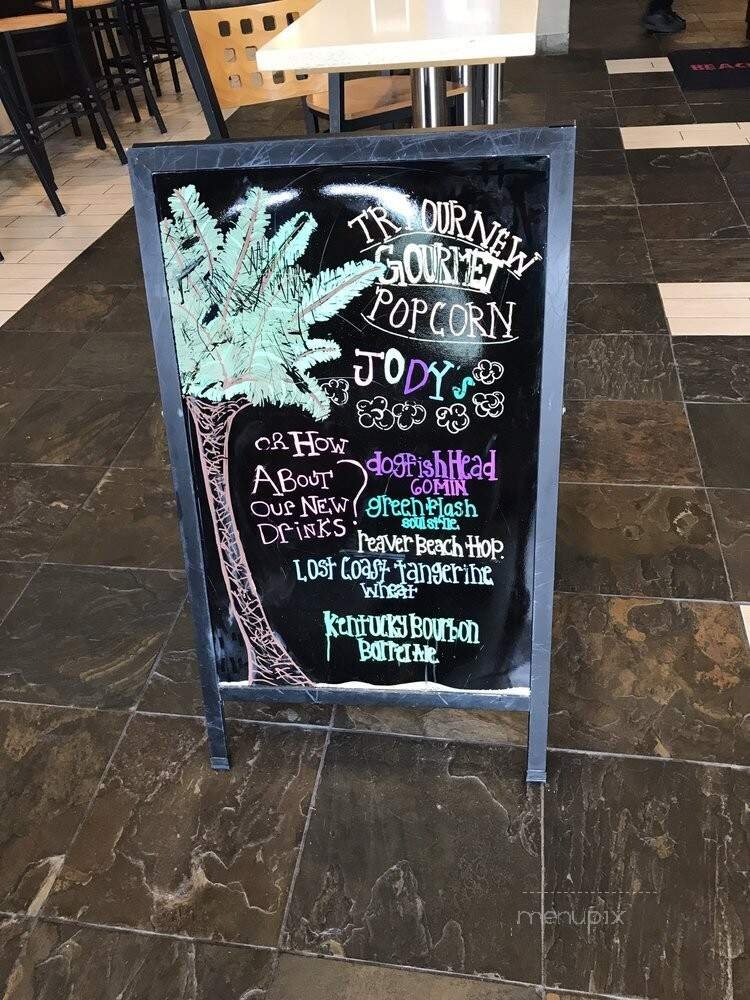 TRY OUR NEW
GOURMET
POPCORN
JODY's
OR HOW
ABOUT
OUR NEW
DRINKS?
dogfish Head
60 MIN
green Flash
soul style
reaver Beach Hop.
Lost Coast tangerine
wheat
Kentucky Bourbon
Barrel Ale
BEAC
menupix